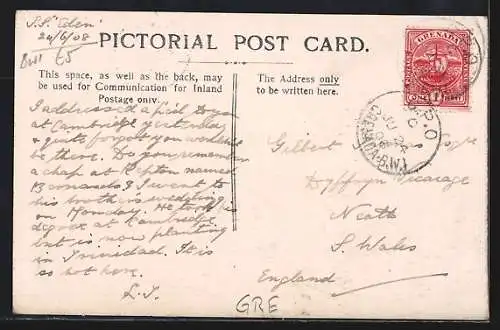 S.S. "Eden"
24/6/08
E5
PICTORIAL POST CARD.
This space, as well as the back, may
be used for Communication for Inland
Postage only.
The Address only
to be written here.
GRENADA
POSTAGE
ONE PENNY
1
G.P.O
GRENADA
I addressed a p.c. to you
at Cambridge yesterday
& quite forgot you wouldn't
be there. Do you remember
a chap at Repton named
Barnando? I went to
his brother's wedding
on Monday. He took his
degree at Cambridge
but is now planting
in Trinidad. It is
so hot here.
L.J.
Gilbert
Dyffryn Vicarage
Neath
S. Wales
England
GRE